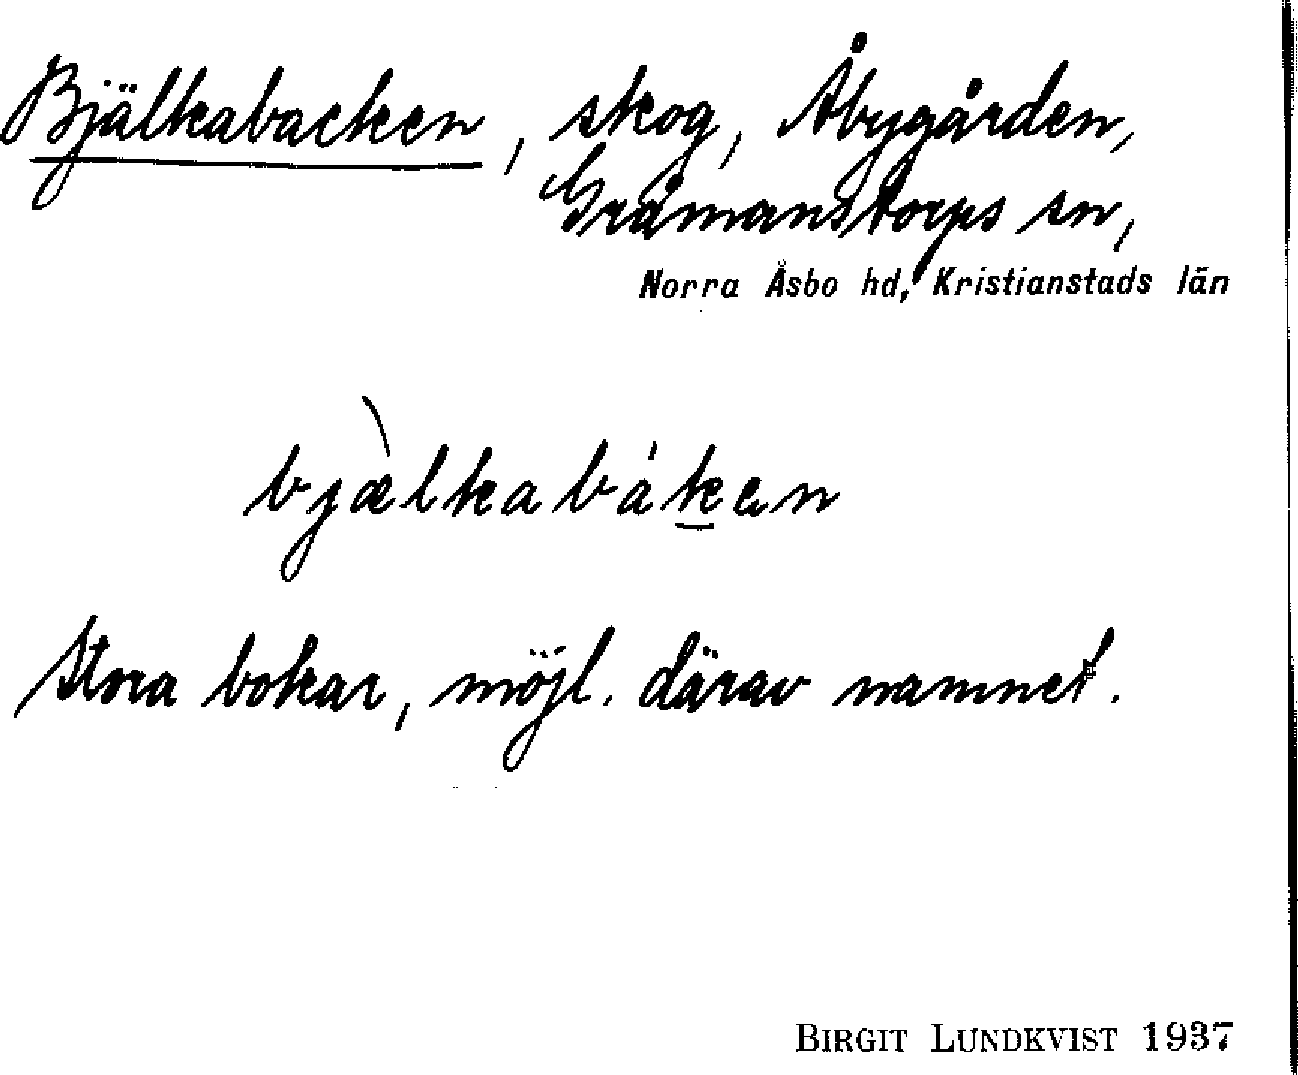 Bjälkabacken, skog, Åbygården,
Gråmanstorps sn,
Norra Åsbo hd, Kristianstads län
bjæ̀lkabákan
Stora bokar, möjl. därav namnet.
BIRGIT LUNDKVIST 1937